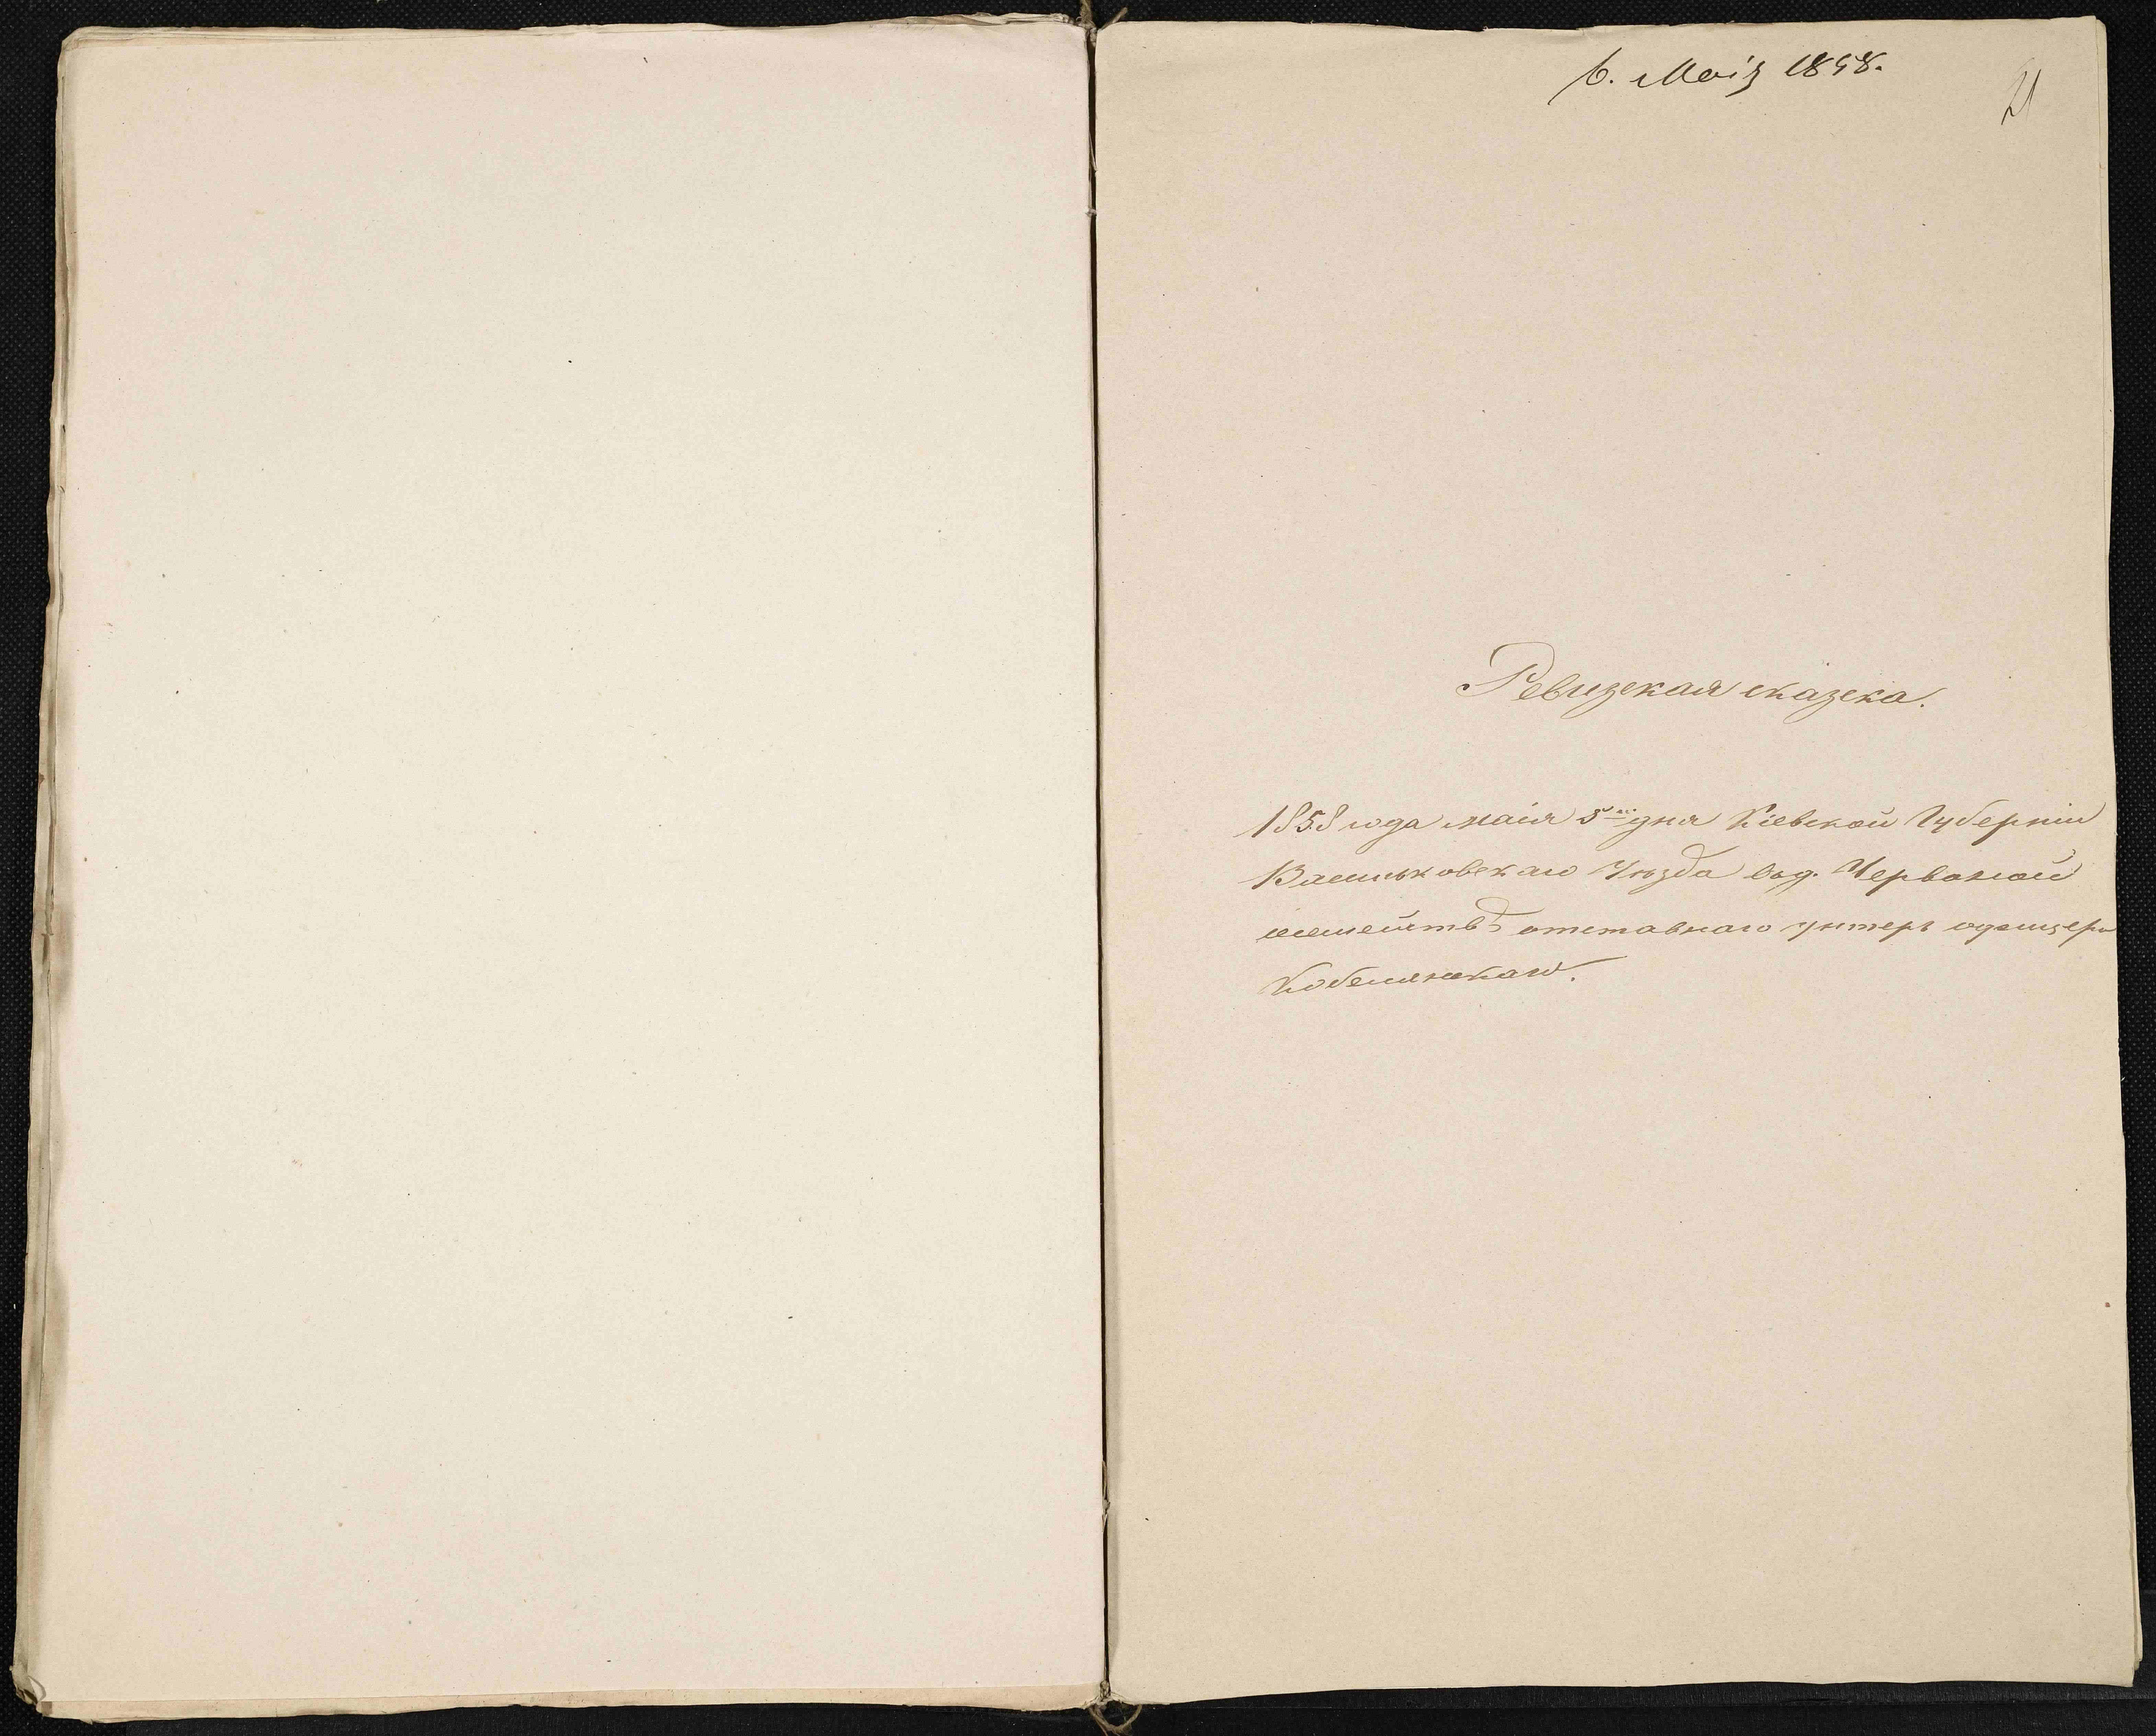 6. Маія 1858.
21
Ревизская сказка.
1858 года маія 5го дня Кіевской Губерніи
Васильковскаго Уѣзда вод. Червоной
семействѣ отставнаго унтеръ офицера
Кобелянскаго.